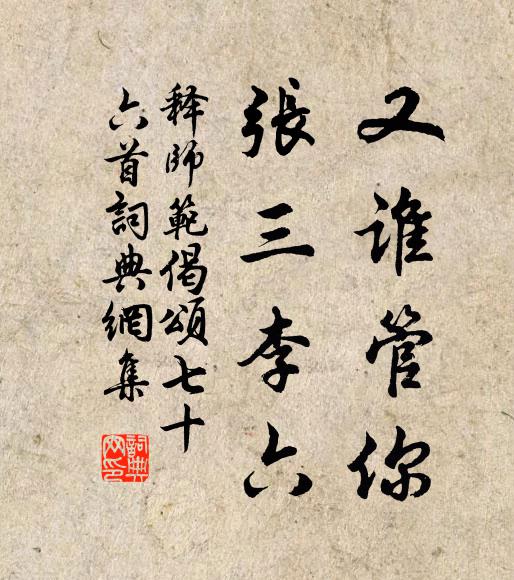 又誰管你
張三李六
釋師範偈頌七十
六首詞典網集
詞典网印